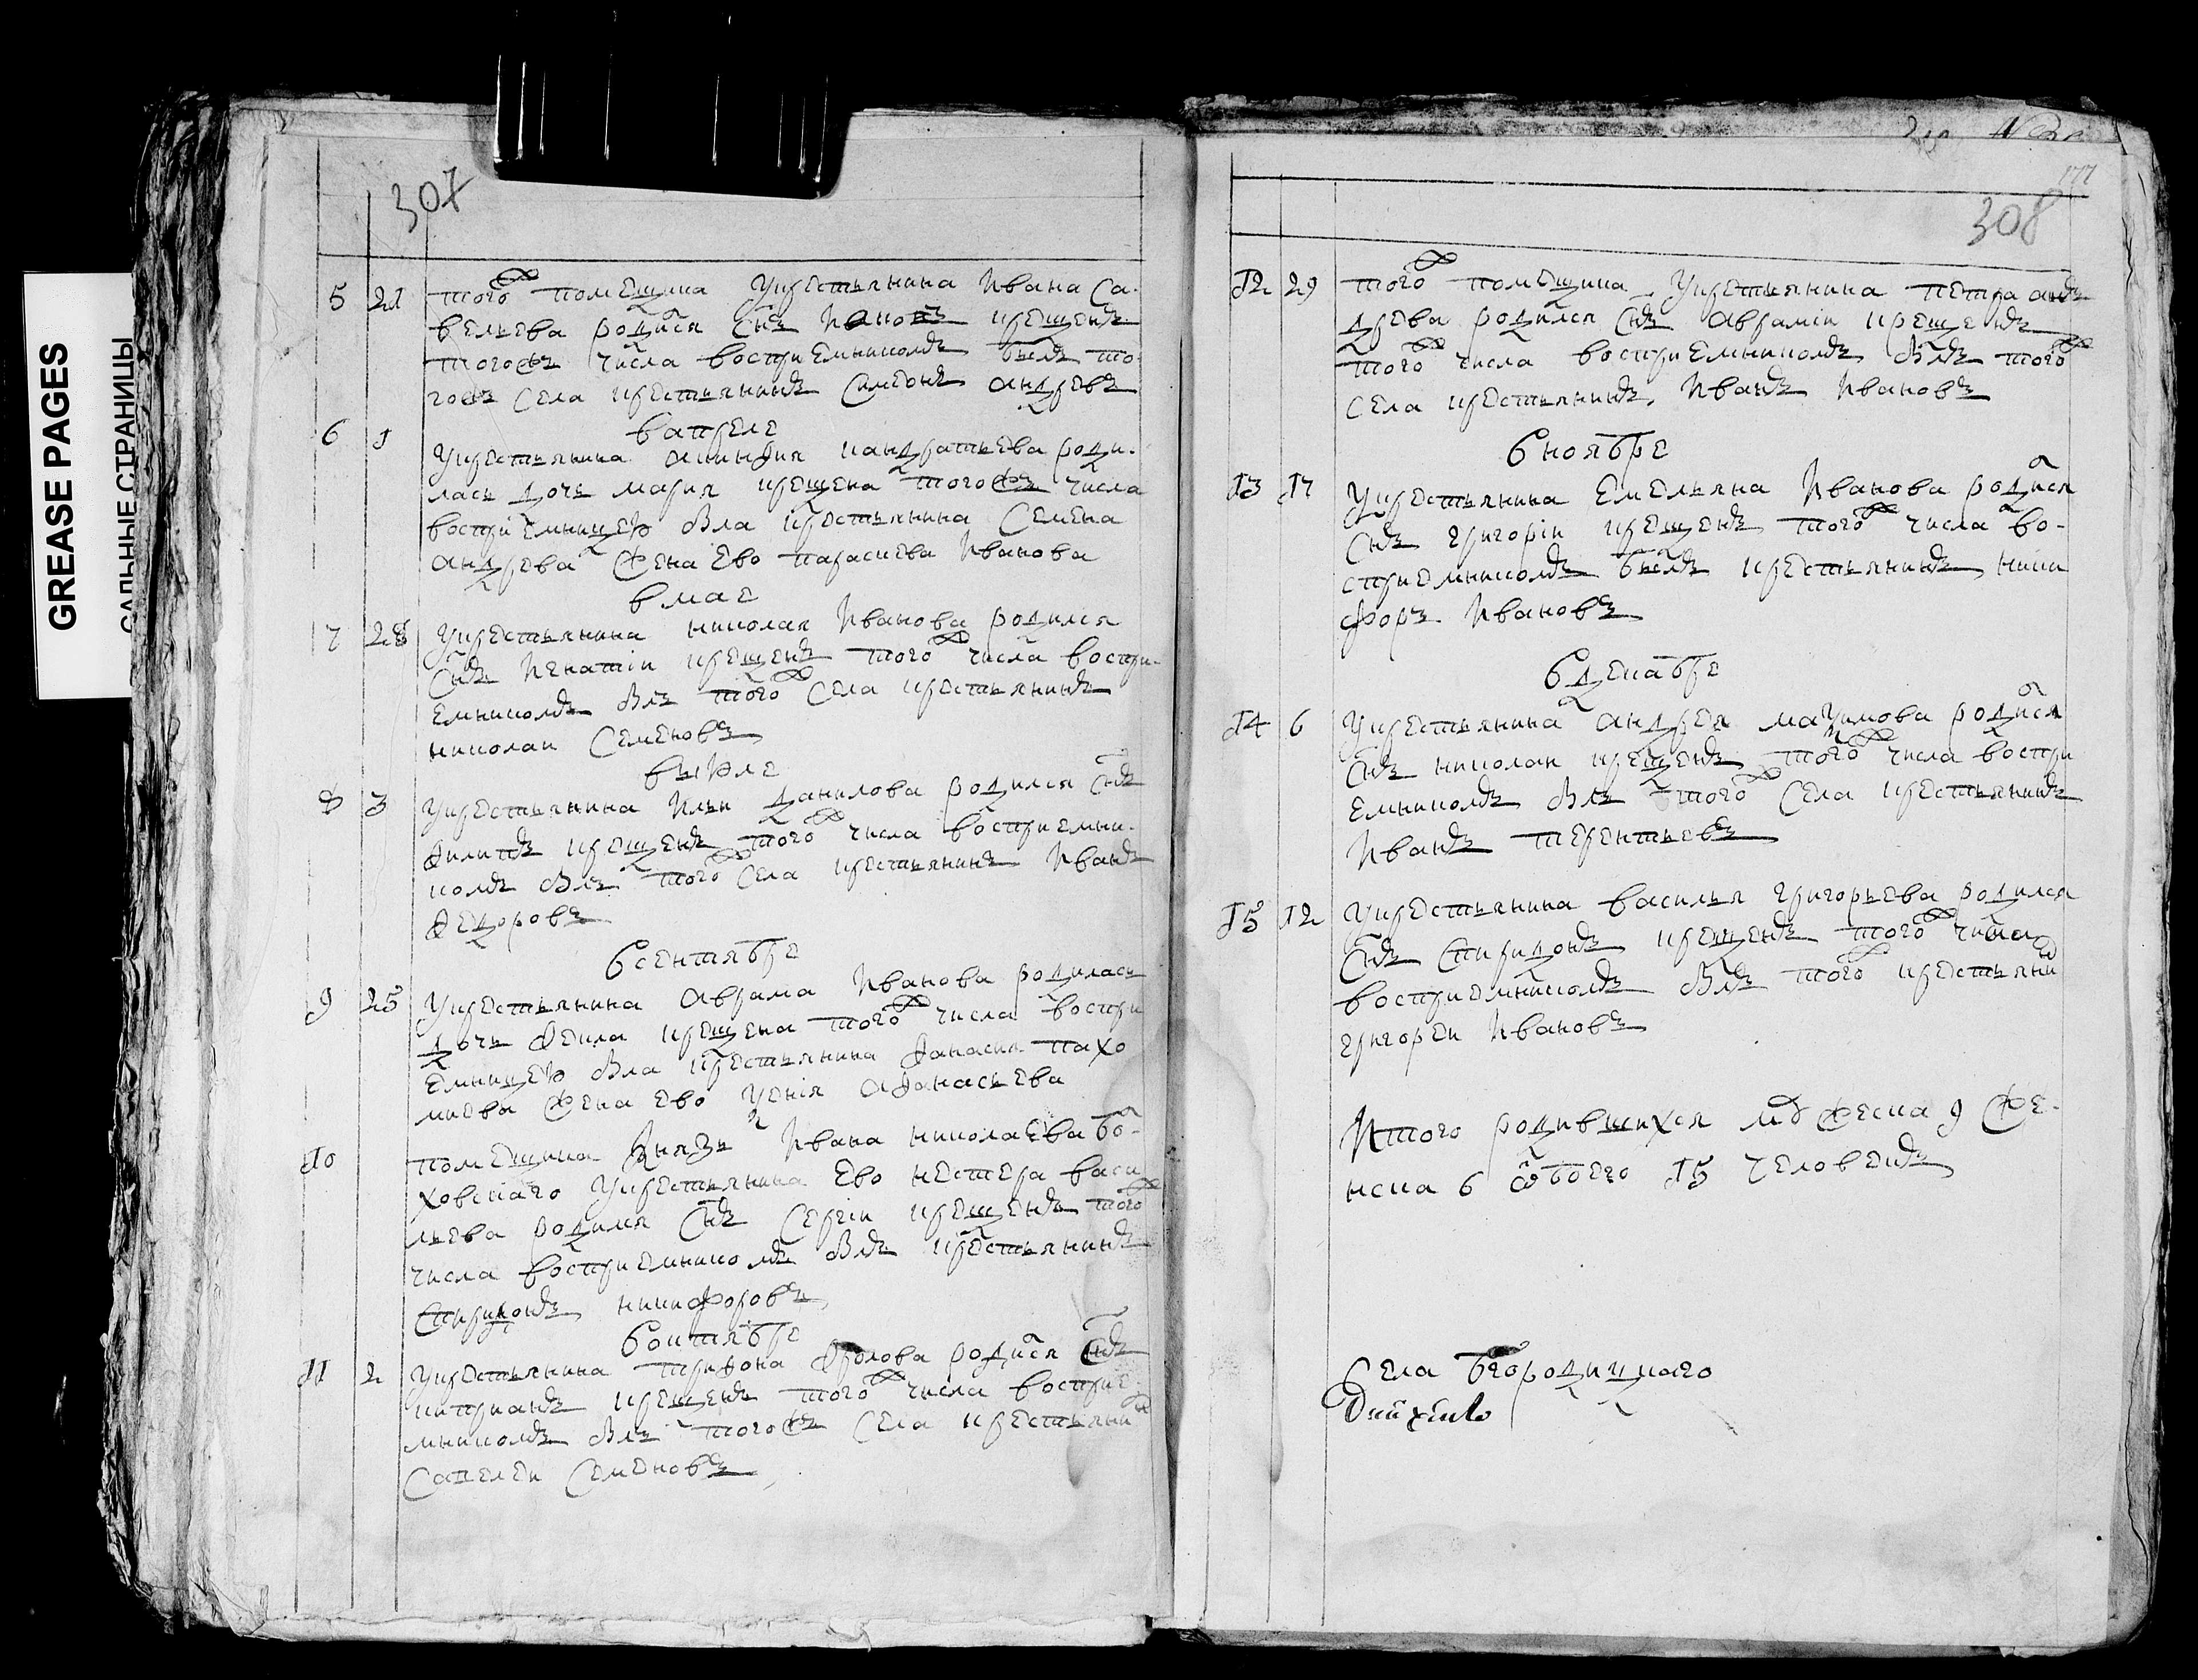 GREASE PAGES
САЛЬНЫЕ СТРАНИЦЫ
307
5 21 того ж помещика укрестьянина Ивана Са-
вельева родился снъ крещенъ
тогожъ числа восприемникомъ былъ то-
гожъ села крестьянинъ Симеонъ андревъ
вапреле
6 1 укрестьянина кандратьева роди-
лась дочь мария крещена тогожъ числа
восприемницею была крестьянина Семена
андрева жена ево параскева Иванова
в мае
7 28 укрестьянина николая Иванова родился
снъ Игнатіи крещенъ того ж числа воспри-
емникомъ былъ того ж села крестьянинъ
николаи Семеновъ
8 3 укрестьянина Ильи данилова родился снъ
филипъ крещенъ того ж числа восприемни-
комъ былъ того ж села крестьянинъ Иванъ
федоровъ
в сентябре
9 25 укрестьянина Аврама Иванова родилась
дочь фекла крещена того ж числа воспри
емницею была крестьянина фанасья пахо
мова жена ево афанасьева
10 помещика князя Ивана николаева
укрестьянина ево нестера васи
льева родился снъ Сергіи крещенъ того ж
числа восприемникомъ былъ крестьянинъ
Спиридонъ никифоровъ
в октябре
11 2 укрестьянина трифона фролова родился снъ
киприанъ крещенъ того ж числа восприе
мникомъ былъ тогожъ села крестьянин
Савелеи Семеновъ
177
308
12 29 того ж помещика укрестьянина петра ан
древа родился снъ Аврамiи крещенъ
того ж числа восприемникомъ былъ того ж
села крестьянинъ Иванъ Ивановъ
в ноябре
13 17 укрестьянина Емельяна Иванова родился
снъ григоріи крещенъ того ж числа во-
сприемникомъ былъ крестьянинъ ники
форъ Ивановъ
в декабре
14 6 укрестьянина андрея маѯимова родился
снъ николаи крещенъ того ж числа воспри
емникомъ былъ того ж села крестьянинъ
Иванъ терентьевъ
15 12 укрестьянина василья григорьева родился
снъ Спиридонъ крещенъ того ж числа
восприемникомъ былъ того ж крестьянин
григореи Ивановъ
Итого родившихся мужеска 9 же-
нска 6 ѡбоего 15 человекъ
Села бгородицкаго